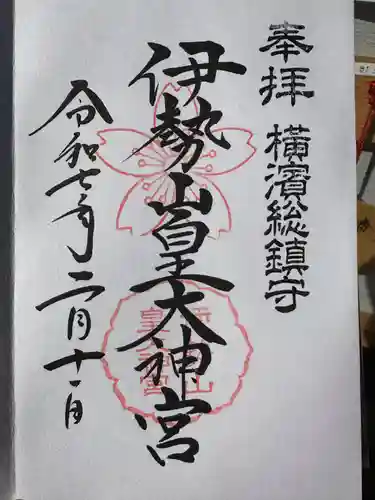 奉拝 横濱総鎮守
伊勢山皇大神宮
令和七年二月十一日